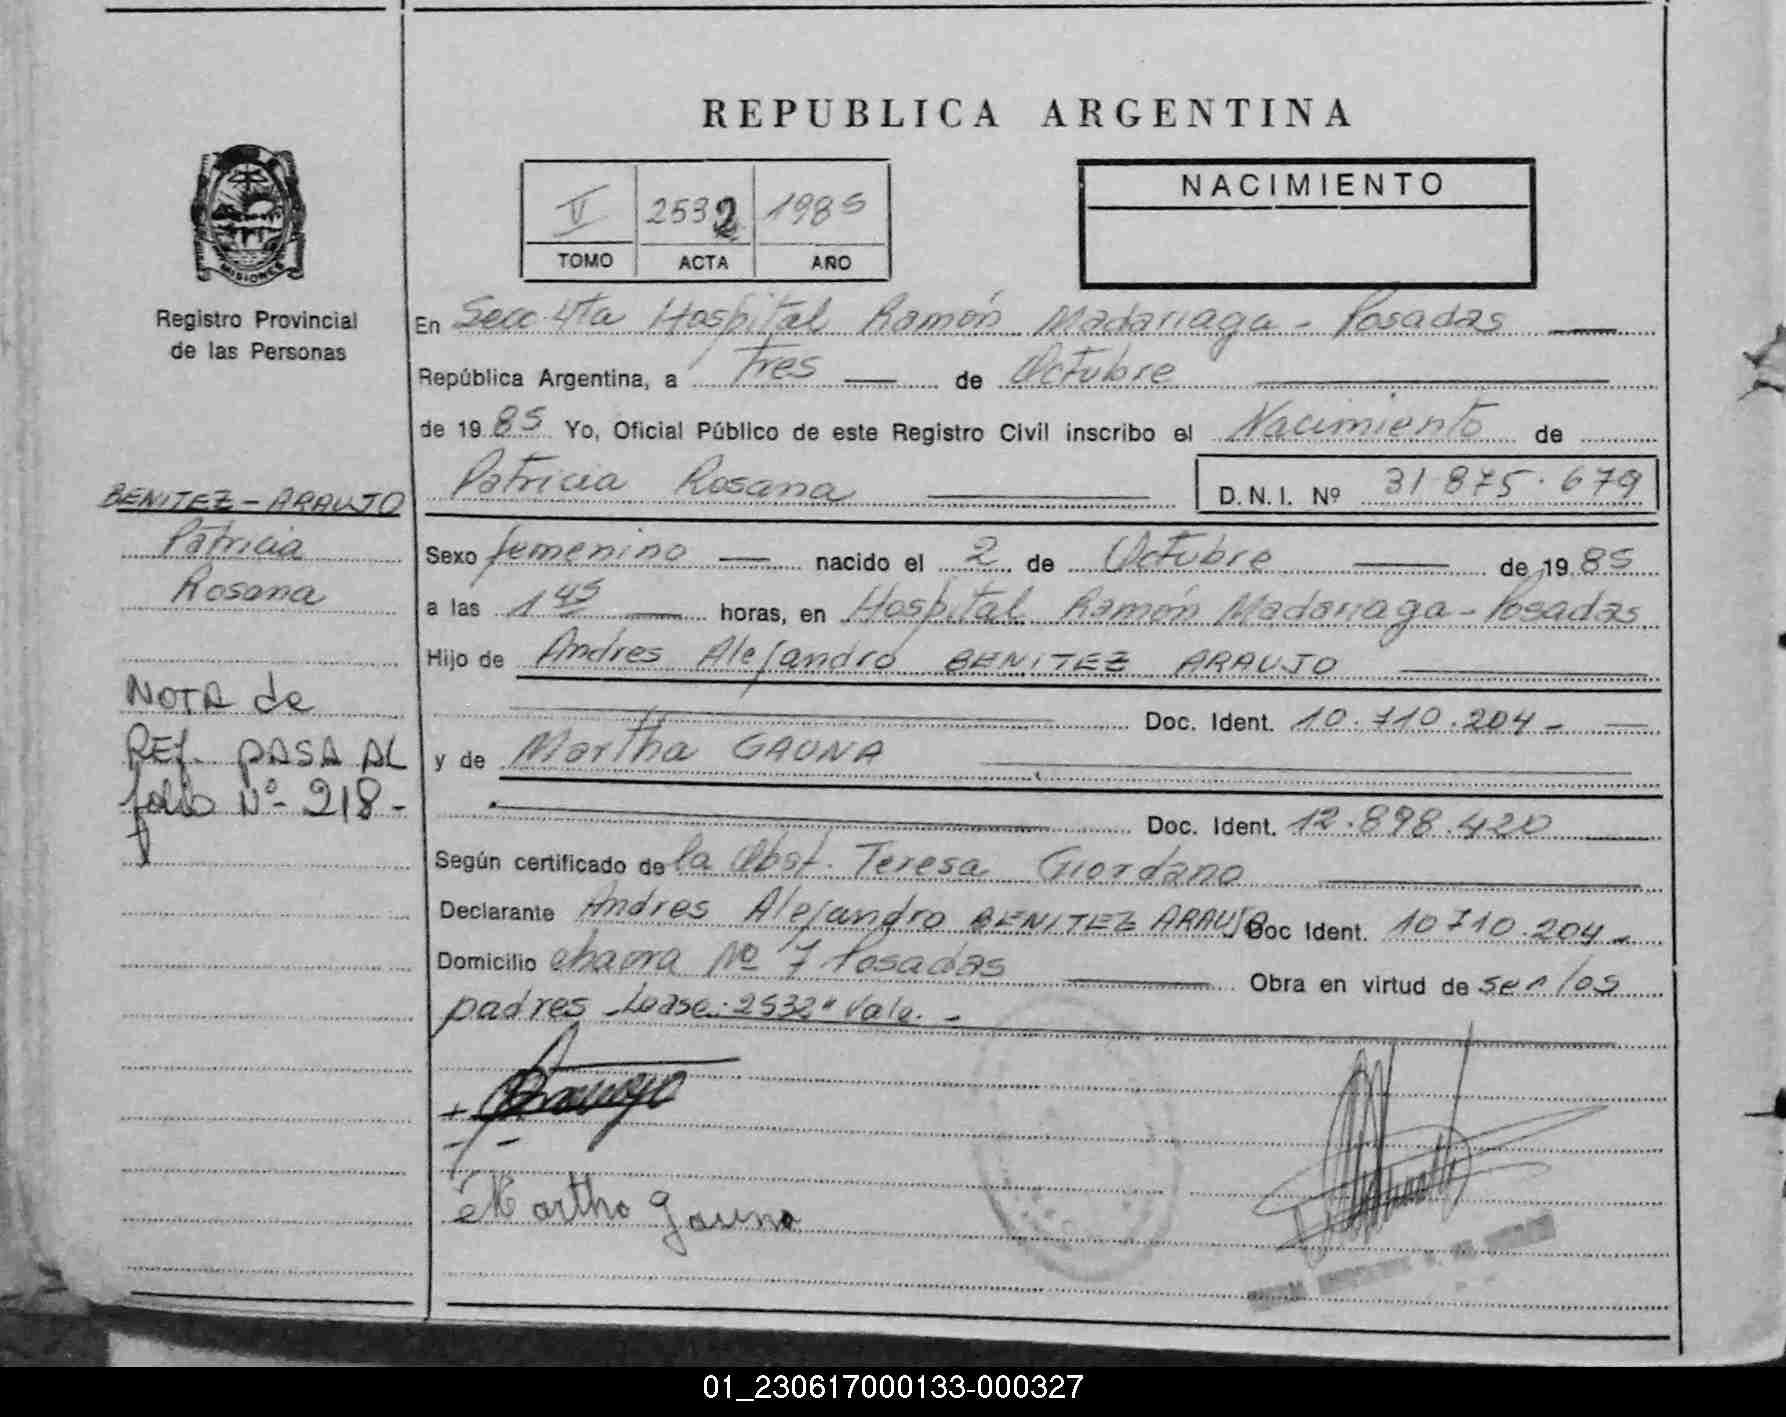 REPUBLICA ARGENTINA
V 2532 1985
TOMO ACTA AÑO
NACIMIENTO
MISIONES
Registro Provincial
de las Personas
En Secc 4ta Hospital Ramón Madariaga - Posadas
República Argentina, a Tres de Octubre
de 1985 Yo, Oficial Público de este Registro Civil inscribo el Nacimiento de
Patricia Rosana D.N.I. Nº 31.875.679
BENITEZ - ARAUJO
Patricia
Rosana
Sexo femenino nacido el 2 de Octubre de 1985
a las 1 45 horas, en Hospital Ramón Madariaga - Posadas
Hijo de Andres Alejandro BENITEZ ARAUJO
Doc. Ident. 10.710.204 -
y de Martha GAUNA
Doc. Ident. 12.898.420
NOTA de
REf. PASA AL
folio Nº- 218 -
Según certificado de la Obst. Teresa Giordano
Declarante Andres Alejandro BENITEZ ARAUJO Doc Ident. 10710.204 -
Domicilio Nº 7 Posadas Obra en virtud de ser los
padres - Lease: 2532" Vale. -
Martha Gauna
01_230617000133-000327